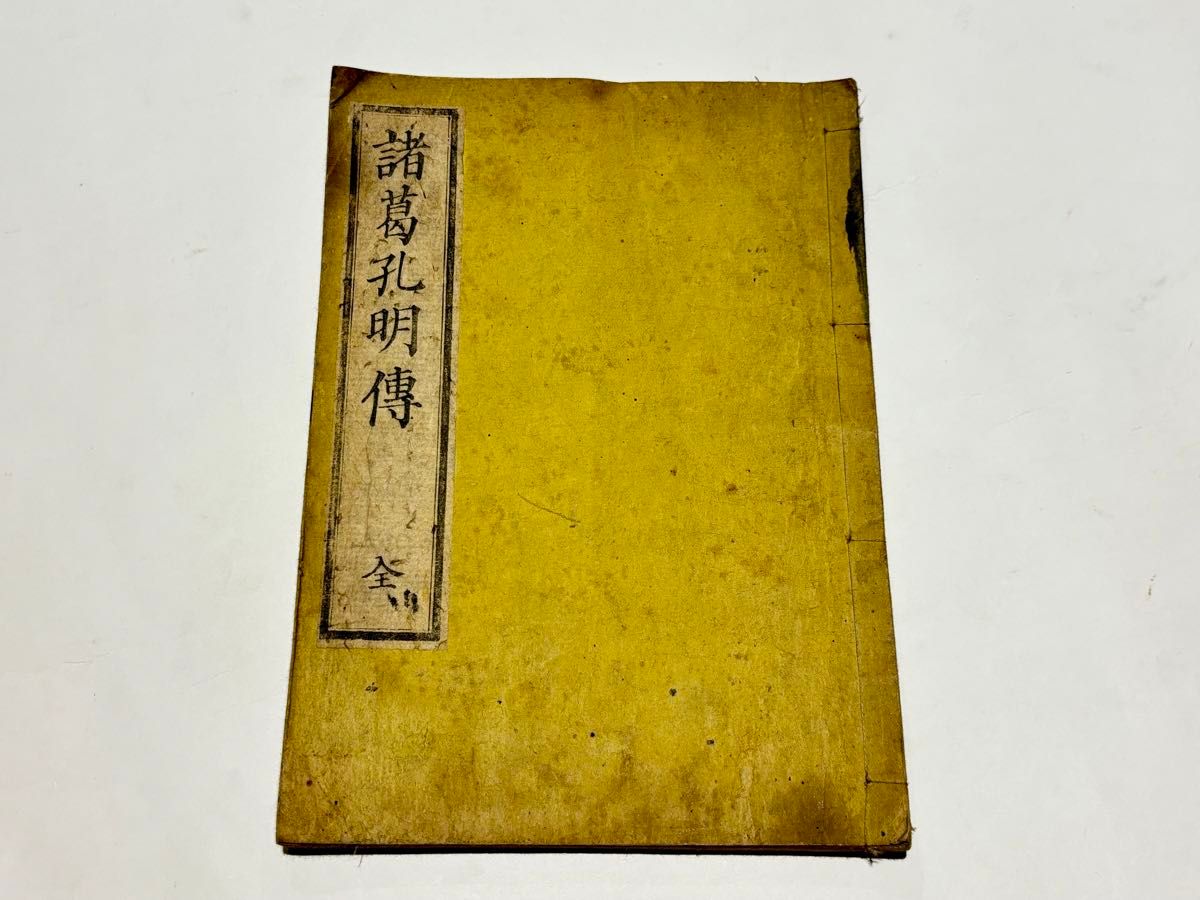 諸葛孔明傳
全